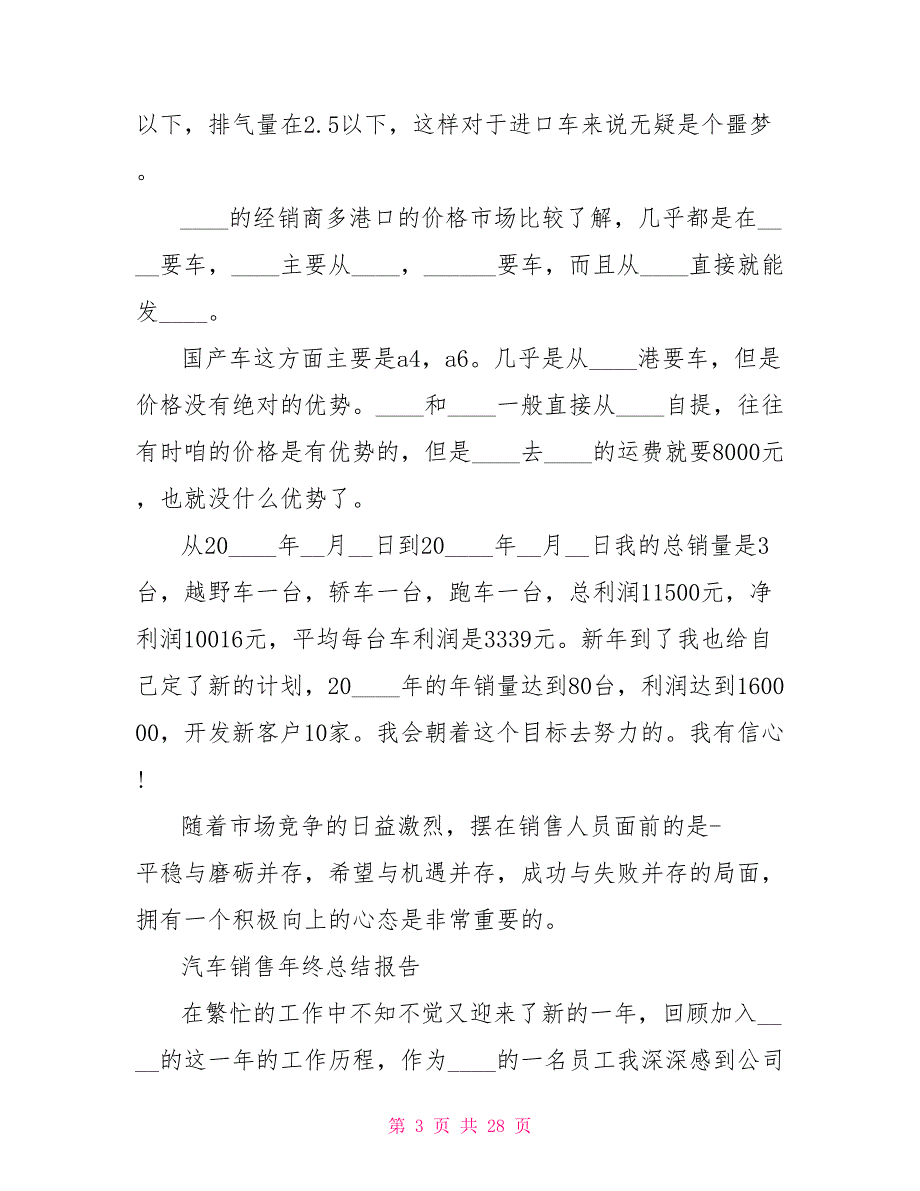 以下，排气量在2.5以下，这样对于进口车来说无疑是个噩梦
。
____的经销商多港口的价格市场比较了解，几乎都是在__
__要车，____主要从____，______要车，而且从____直接就能
发____。
国产车这方面主要是a4，a6。几乎是从____港要车，但是
价格没有绝对的优势。____和____一般直接从____自提，往往
有时咱的价格是有优势的，但是____去____的运费就要8000元
，也就没什么优势了。
从20____年__月__日到20____年__月__日我的总销量是3
台，越野车一台，轿车一台，跑车一台，总利润11500元，净
利润10016元，平均每台车利润是3339元。新年到了我也给自
己定了新的计划，20____年的年销量达到80台，利润达到1600
00，开发新客户10家。我会朝着这个目标去努力的。我有信心
!
随着市场竞争的日益激烈，摆在销售人员面前的是-
平稳与磨砺并存，希望与机遇并存，成功与失败并存的局面，
拥有一个积极向上的心态是非常重要的。
汽车销售年终总结报告
在繁忙的工作中不知不觉又迎来了新的一年，回顾加入__
__的这一年的工作历程，作为____的一名员工我深深感到公司
第 3 页 共 28 页